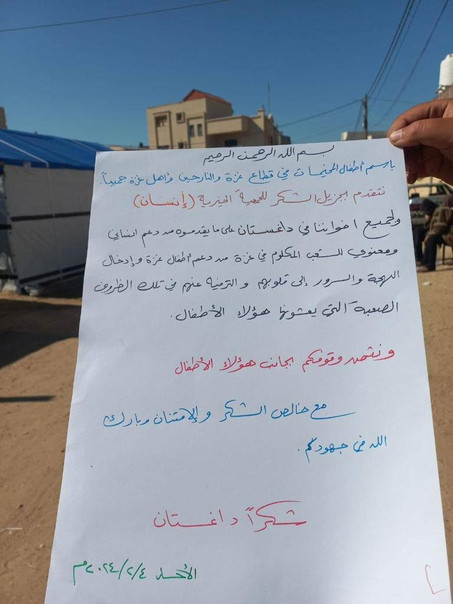 بسم الله الرحمن الرحيم
باسم أطفال المخيمات في قطاع غزة والنازحين وأهل غزة جميعاً.
نتقدم بجزيل الشكر للجمعية الخيرية (إنسان)
ولجميع اخواننا في داغستان على ما يقدموه من دعم انساني
ومعنوي للشعب المكلوم في غزة من دعم أطفال غزة وإدخال
البهجة والسرور إلى قلوبهم والترفيه عنهم في تلك الظروف
الصعبة التي يعشونها هؤلاء الأطفال.
ونثمن وقوفكم بجانب هؤلاء الأطفال
مع خالص الشكر والإمتنان وبارك
الله في جهودكم.
شكراً داغستان
الأحد ٢٠٢٤/٢/٤م